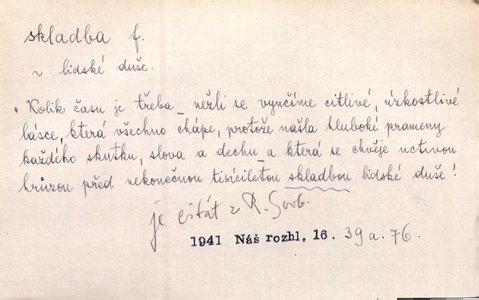 skladba f.
~ lidské duše.
„Kolik času je třeba, nežli se vyučíme citlivé, úzkostlivé
lásce, která všechno chápe, protože našla hluboké prameny
každého skutku, slova a dechu, a která se chvěje uctivou
hrůzou před nekonečnou tisíciletou skladbou lidské duše!
je citát z R. Svob.
1941 Náš rozhl. 16. 39 a. 76.